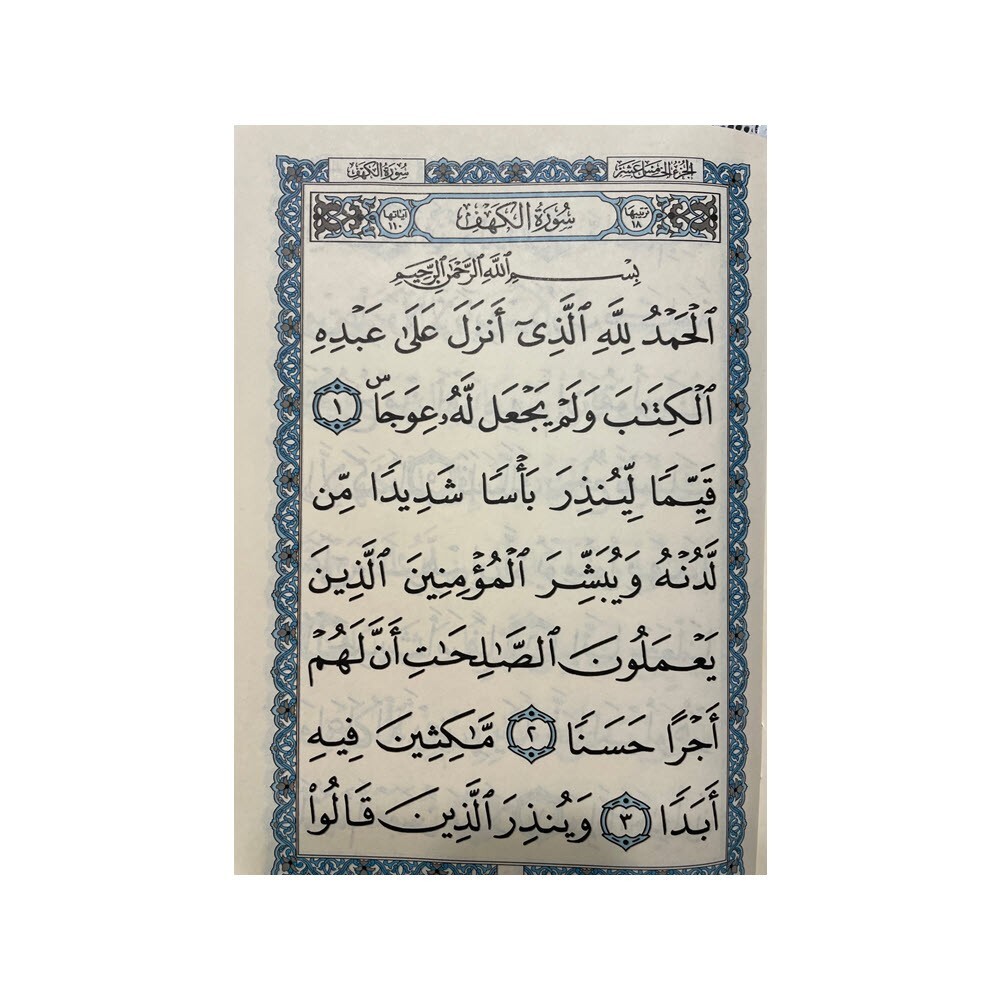 الجزء الخامس عشر
سورة الكهف
ترتيبها ١٨
سُورَةُ الكَهْفِ
آياتها ١١٠
بِسْمِ ٱللَّهِ ٱلرَّحْمَٰنِ ٱلرَّحِيمِ
ٱلْحَمْدُ لِلَّهِ ٱلَّذِىٓ أَنزَلَ عَلَىٰ عَبْدِهِ
ٱلْكِتَٰبَ وَلَمْ يَجْعَل لَّهُۥ عِوَجَاۜ ١
قَيِّمًا لِّيُنذِرَ بَأْسًا شَدِيدًا مِّن
لَّدُنْهُ وَيُبَشِّرَ ٱلْمُؤْمِنِينَ ٱلَّذِينَ
يَعْمَلُونَ ٱلصَّٰلِحَٰتِ أَنَّ لَهُمْ
أَجْرًا حَسَنًا ٢ مَّٰكِثِينَ فِيهِ
أَبَدًا ٣ وَيُنذِرَ ٱلَّذِينَ قَالُوا۟